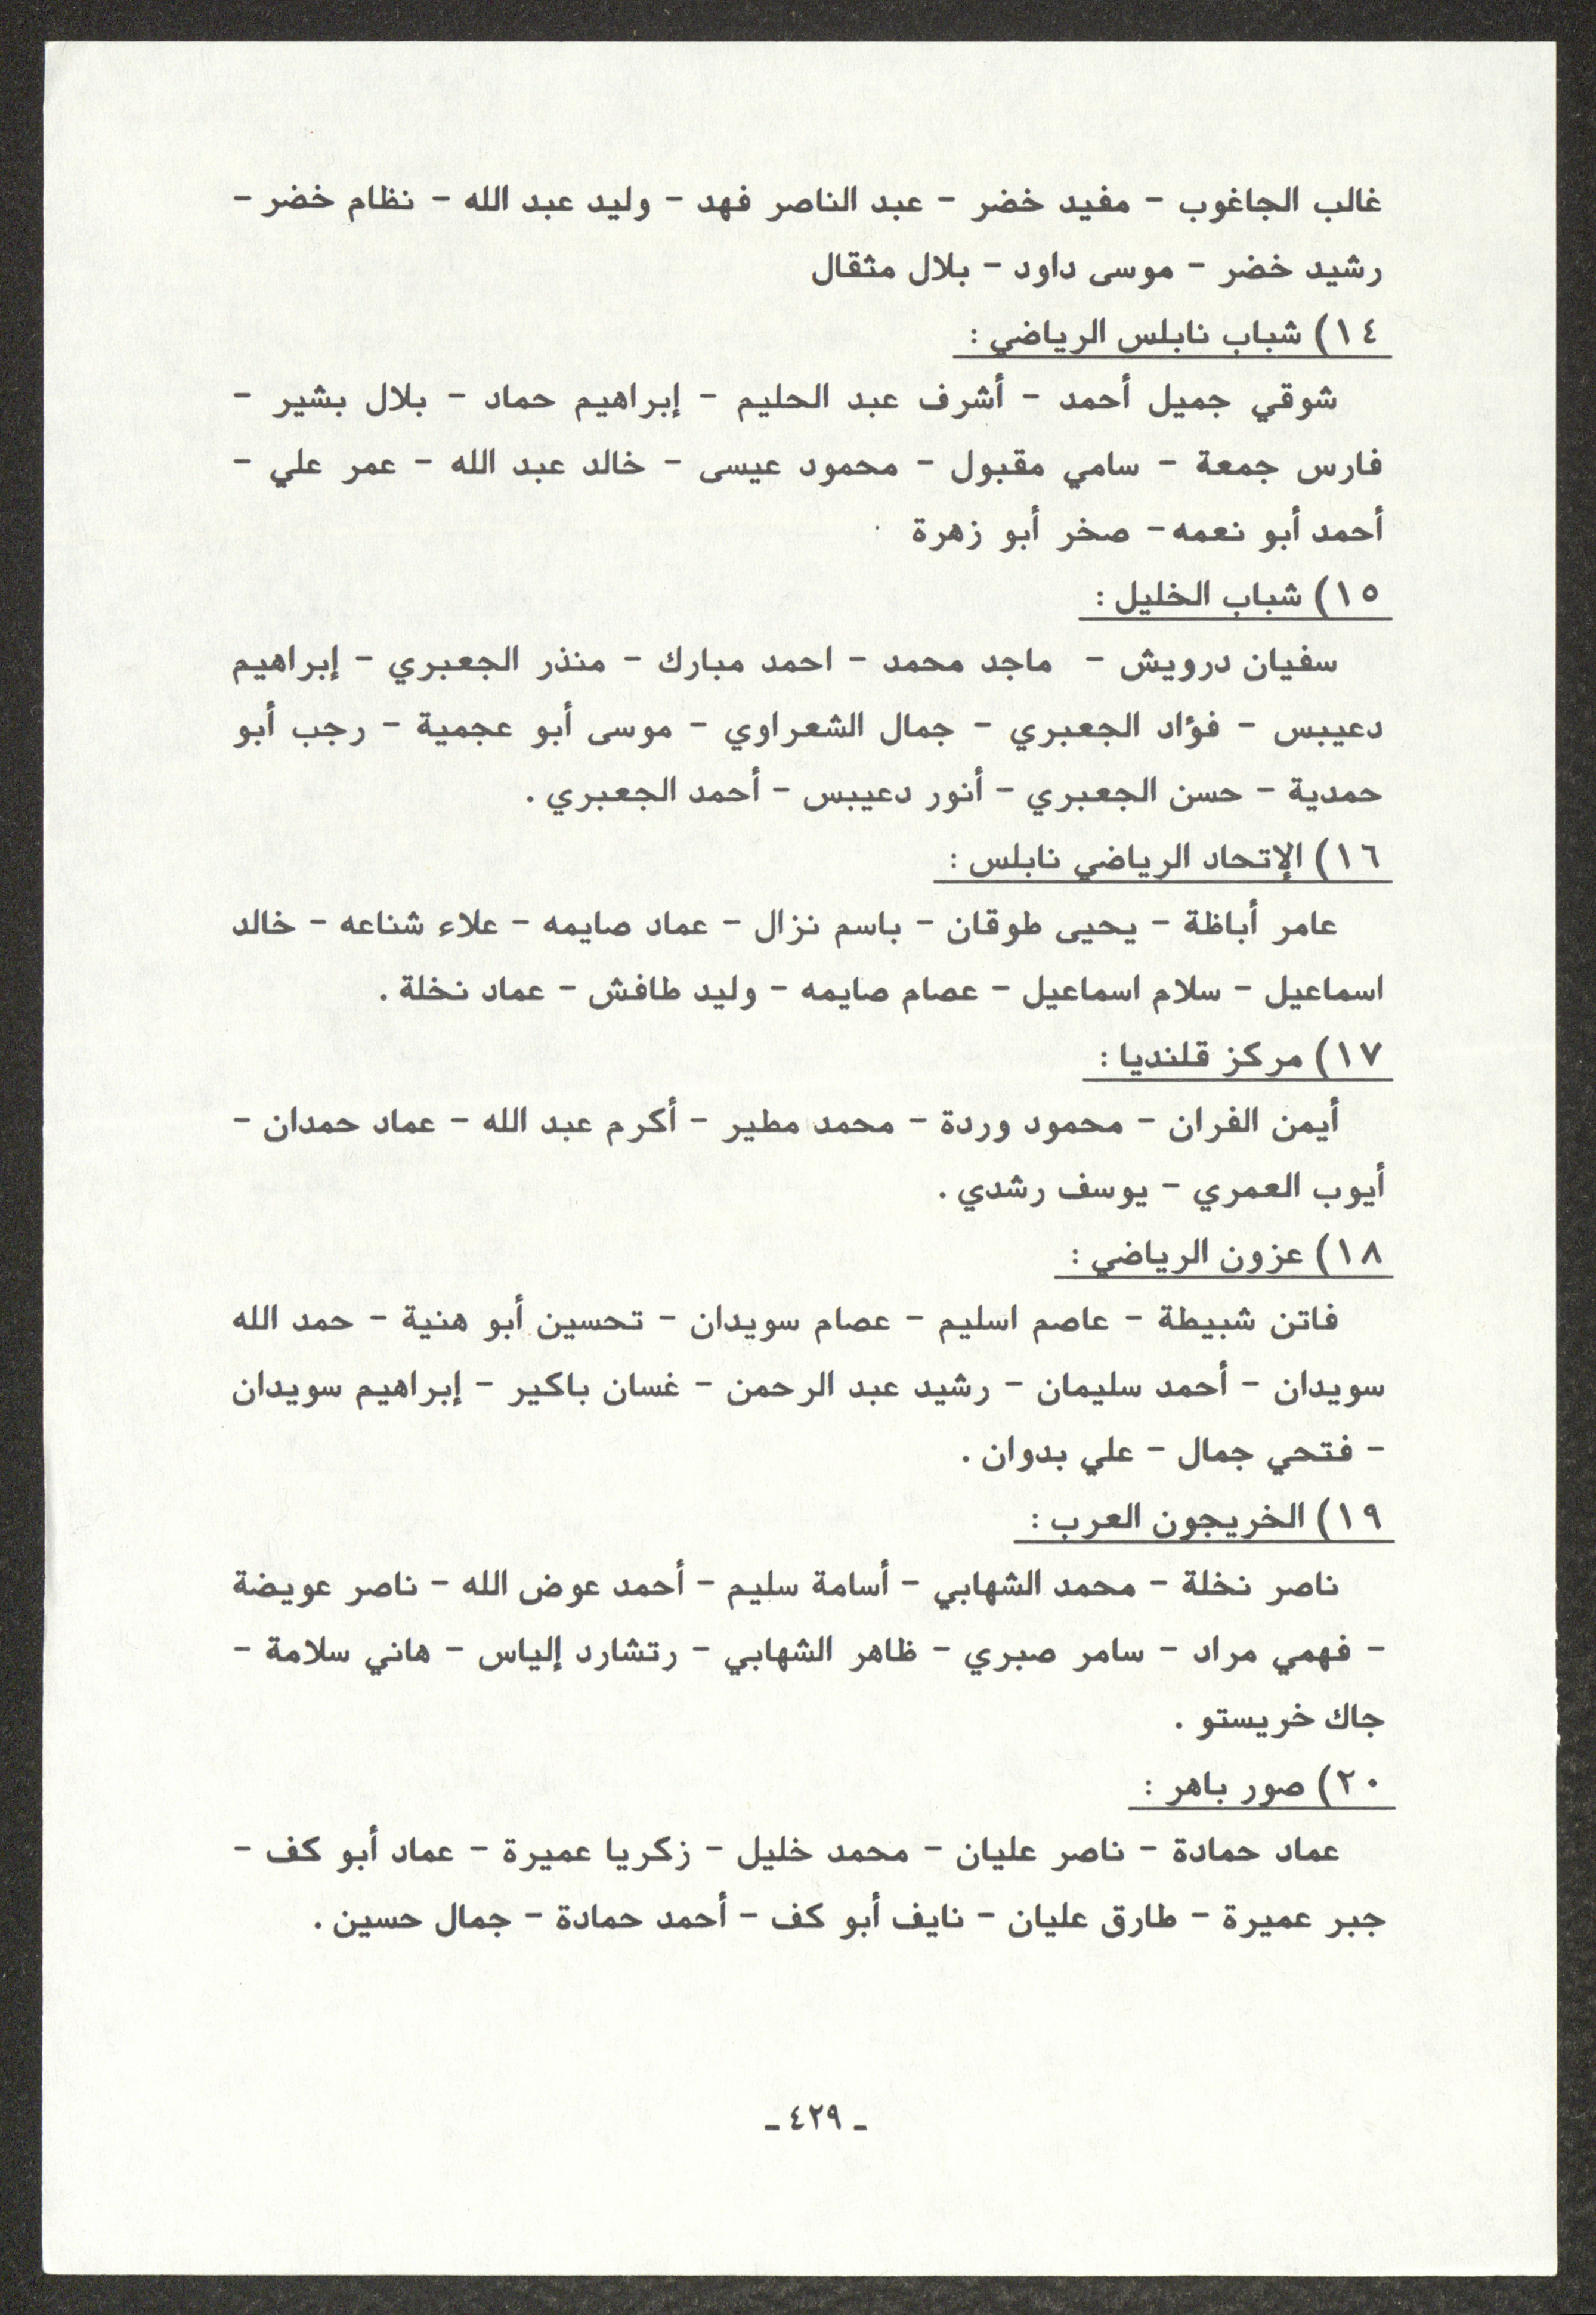 غالب الجاغوب - مفيد خضر - عبد الناصر فهد - وليد عبد الله - نظام خضر -
رشيد خضر - موسى داود - بلال مثقال
١٤) شباب نابلس الرياضي :
شوقي جميل أحمد - أشرف عبد الحليم - إبراهيم حماد - بلال بشير -
فارس جمعة - سامي مقبول - محمود عيسى - خالد عبد الله - عمر علي -
أحمد أبو نعمه - صخر أبو زهرة
١٥) شباب الخليل :
سفيان درويش - ماجد محمد - احمد مبارك - منذر الجعبري - إبراهيم
دعيبس - فؤاد الجعبري - جمال الشعراوي - موسى أبو عجمية - رجب أبو
حمدية - حسن الجعبري - أنور دعيبس - أحمد الجعبري .
١٦) الإتحاد الرياضي نابلس :
عامر أباظة - يحيى طوقان - باسم نزال - عماد صايمه - علاء شناعه - خالد
اسماعيل - سلام اسماعيل - عصام صايمه - وليد طافش - عماد نخلة .
١٧) مركز قلنديا :
أيمن الفران - محمود وردة - محمد مطير - أكرم عبد الله - عماد حمدان -
أيوب العمري - يوسف رشدي .
١٨) عزون الرياضي :
فاتن شبيطة - عاصم اسليم - عصام سويدان - تحسين أبو هنية - حمد الله
سويدان - أحمد سليمان - رشيد عبد الرحمن - غسان باكير - إبراهيم سويدان
- فتحي جمال - علي بدوان .
١٩) الخريجون العرب :
ناصر نخلة - محمد الشهابي - أسامة سليم - أحمد عوض الله - ناصر عويضة
- فهمي مراد - سامر صبري - ظاهر الشهابي - رتشارد إلياس - هاني سلامة -
جاك خريستو .
٢٠) صور باهر :
عماد حمادة - ناصر عليان - محمد خليل - زكريا عميرة - عماد أبو كف -
جبر عميرة - طارق عليان - نايف أبو كف - أحمد حمادة - جمال حسين .
ـ ٤٢٩ ـ